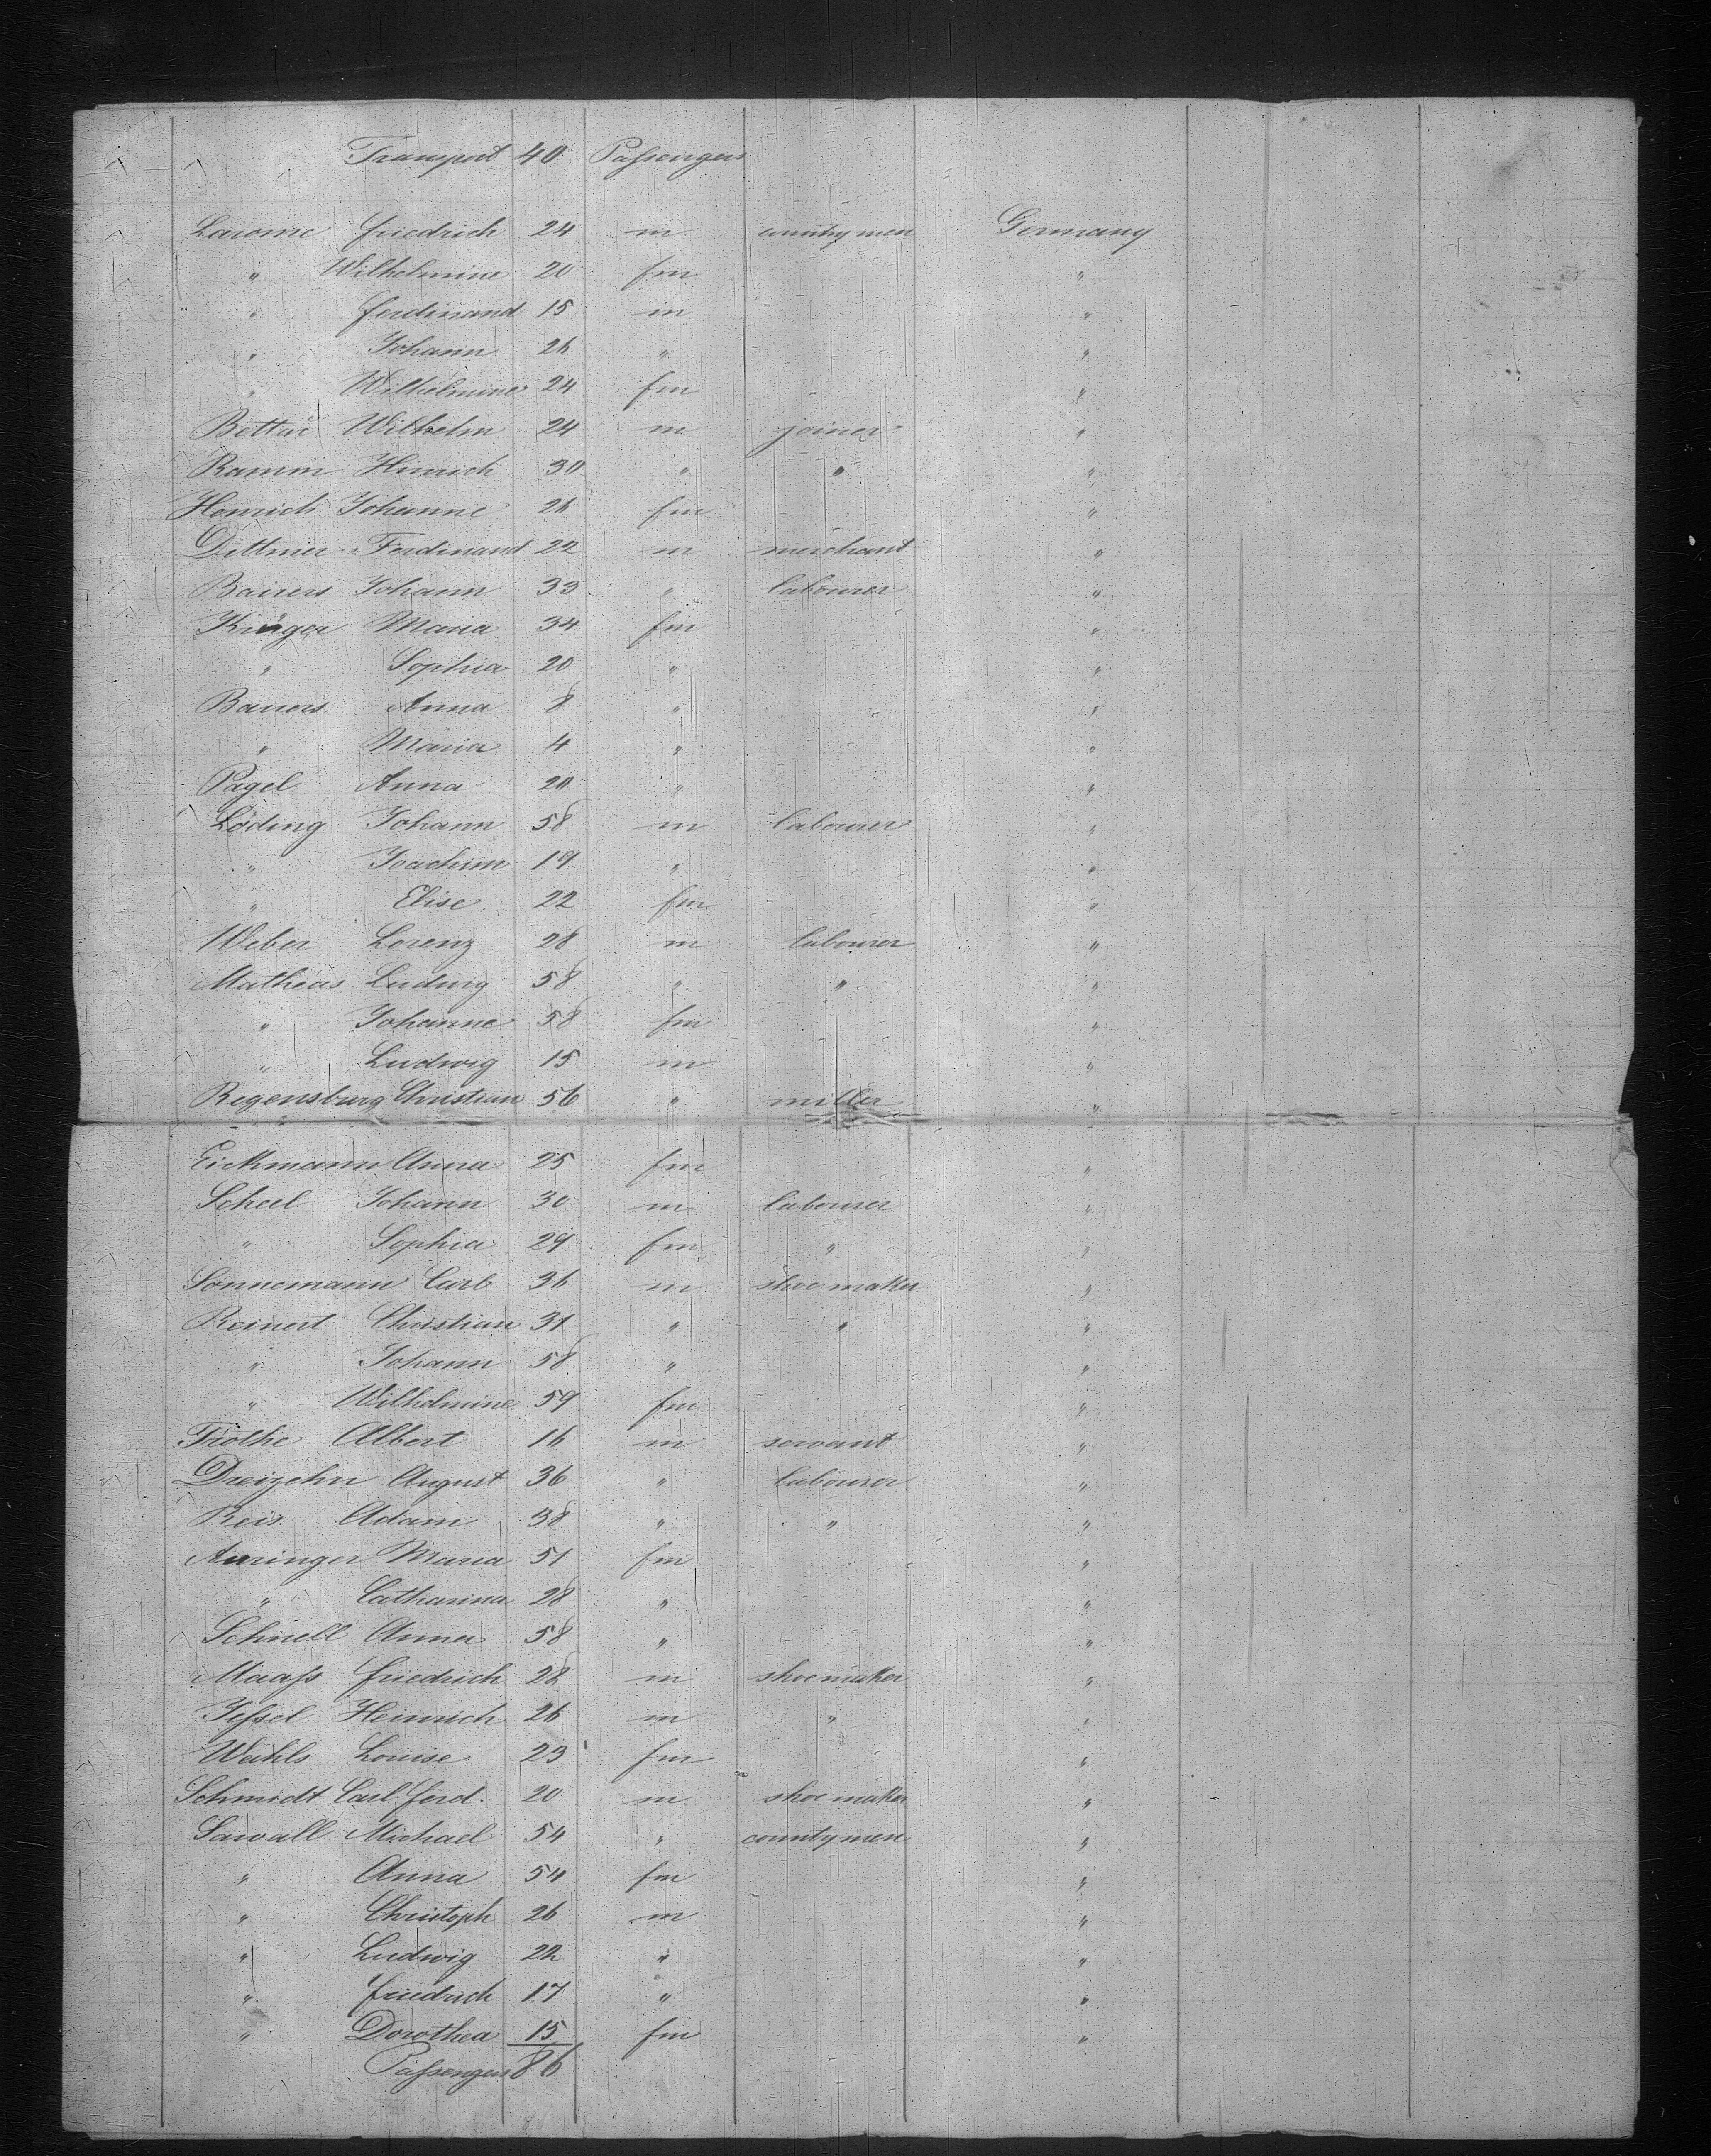 Transport 40 Passengers
Larome Friedrich 24 m countrymen Germany
" Wilhelmine 20 fm "
" Ferdinand 15 m "
" Johann 26 " "
" Wilhelmine 24 fm "
Wilhelm 24 m joiner "
Ramm Hinrich 30 " " "
Henrich Johanne 26 fm "
Dittmer Ferdinand 22 m merchant "
Baiers Johann 33 " labourer "
Krüger Maria 34 fm "
" Sophia 20 " "
Baiers Anna 8 " "
" Maria 4 " "
Pagel Anna 20 " "
Löding Johann 58 m labourer "
" Joachim 19 " "
" Elise 22 fm "
Weber Lorenz 28 m labourer "
Matheas Ludwig 58 " " "
" Johanne 58 fm "
" Ludwig 15 m "
Regensburg Christian 56 " miller "
Eickmann Anna 25 fm "
Scheel Johann 30 m labourer "
" Sophia 29 fm " "
Sonnemann Carl 36 m shoemaker "
Reinert Christian 31 " " "
" Johann 58 " "
" Wilhelmine 59 fm "
Trothe Albert 16 m servant "
Dreizehn August 36 " labourer "
Reis Adam 38 " " "
Auringer Maria 51 fm "
" Catharina 28 " "
Schnell Anna 58 " "
Maass Friedrich 28 m shoemaker "
Jessel Heinrich 26 m " "
Wahls Louise 23 fm "
Schmidt Carl Ferd. 20 m shoemaker "
Sawall Michael 54 " countymen "
" Anna 54 fm "
" Christoph 26 m "
" Ludwig 22 " "
" Friedrich 17 " "
" Dorothea 15 fm "
Passengers 86